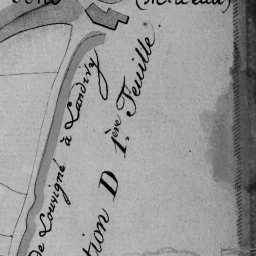 de Louvigné à Landivy
tion D 1.ère Feuille.